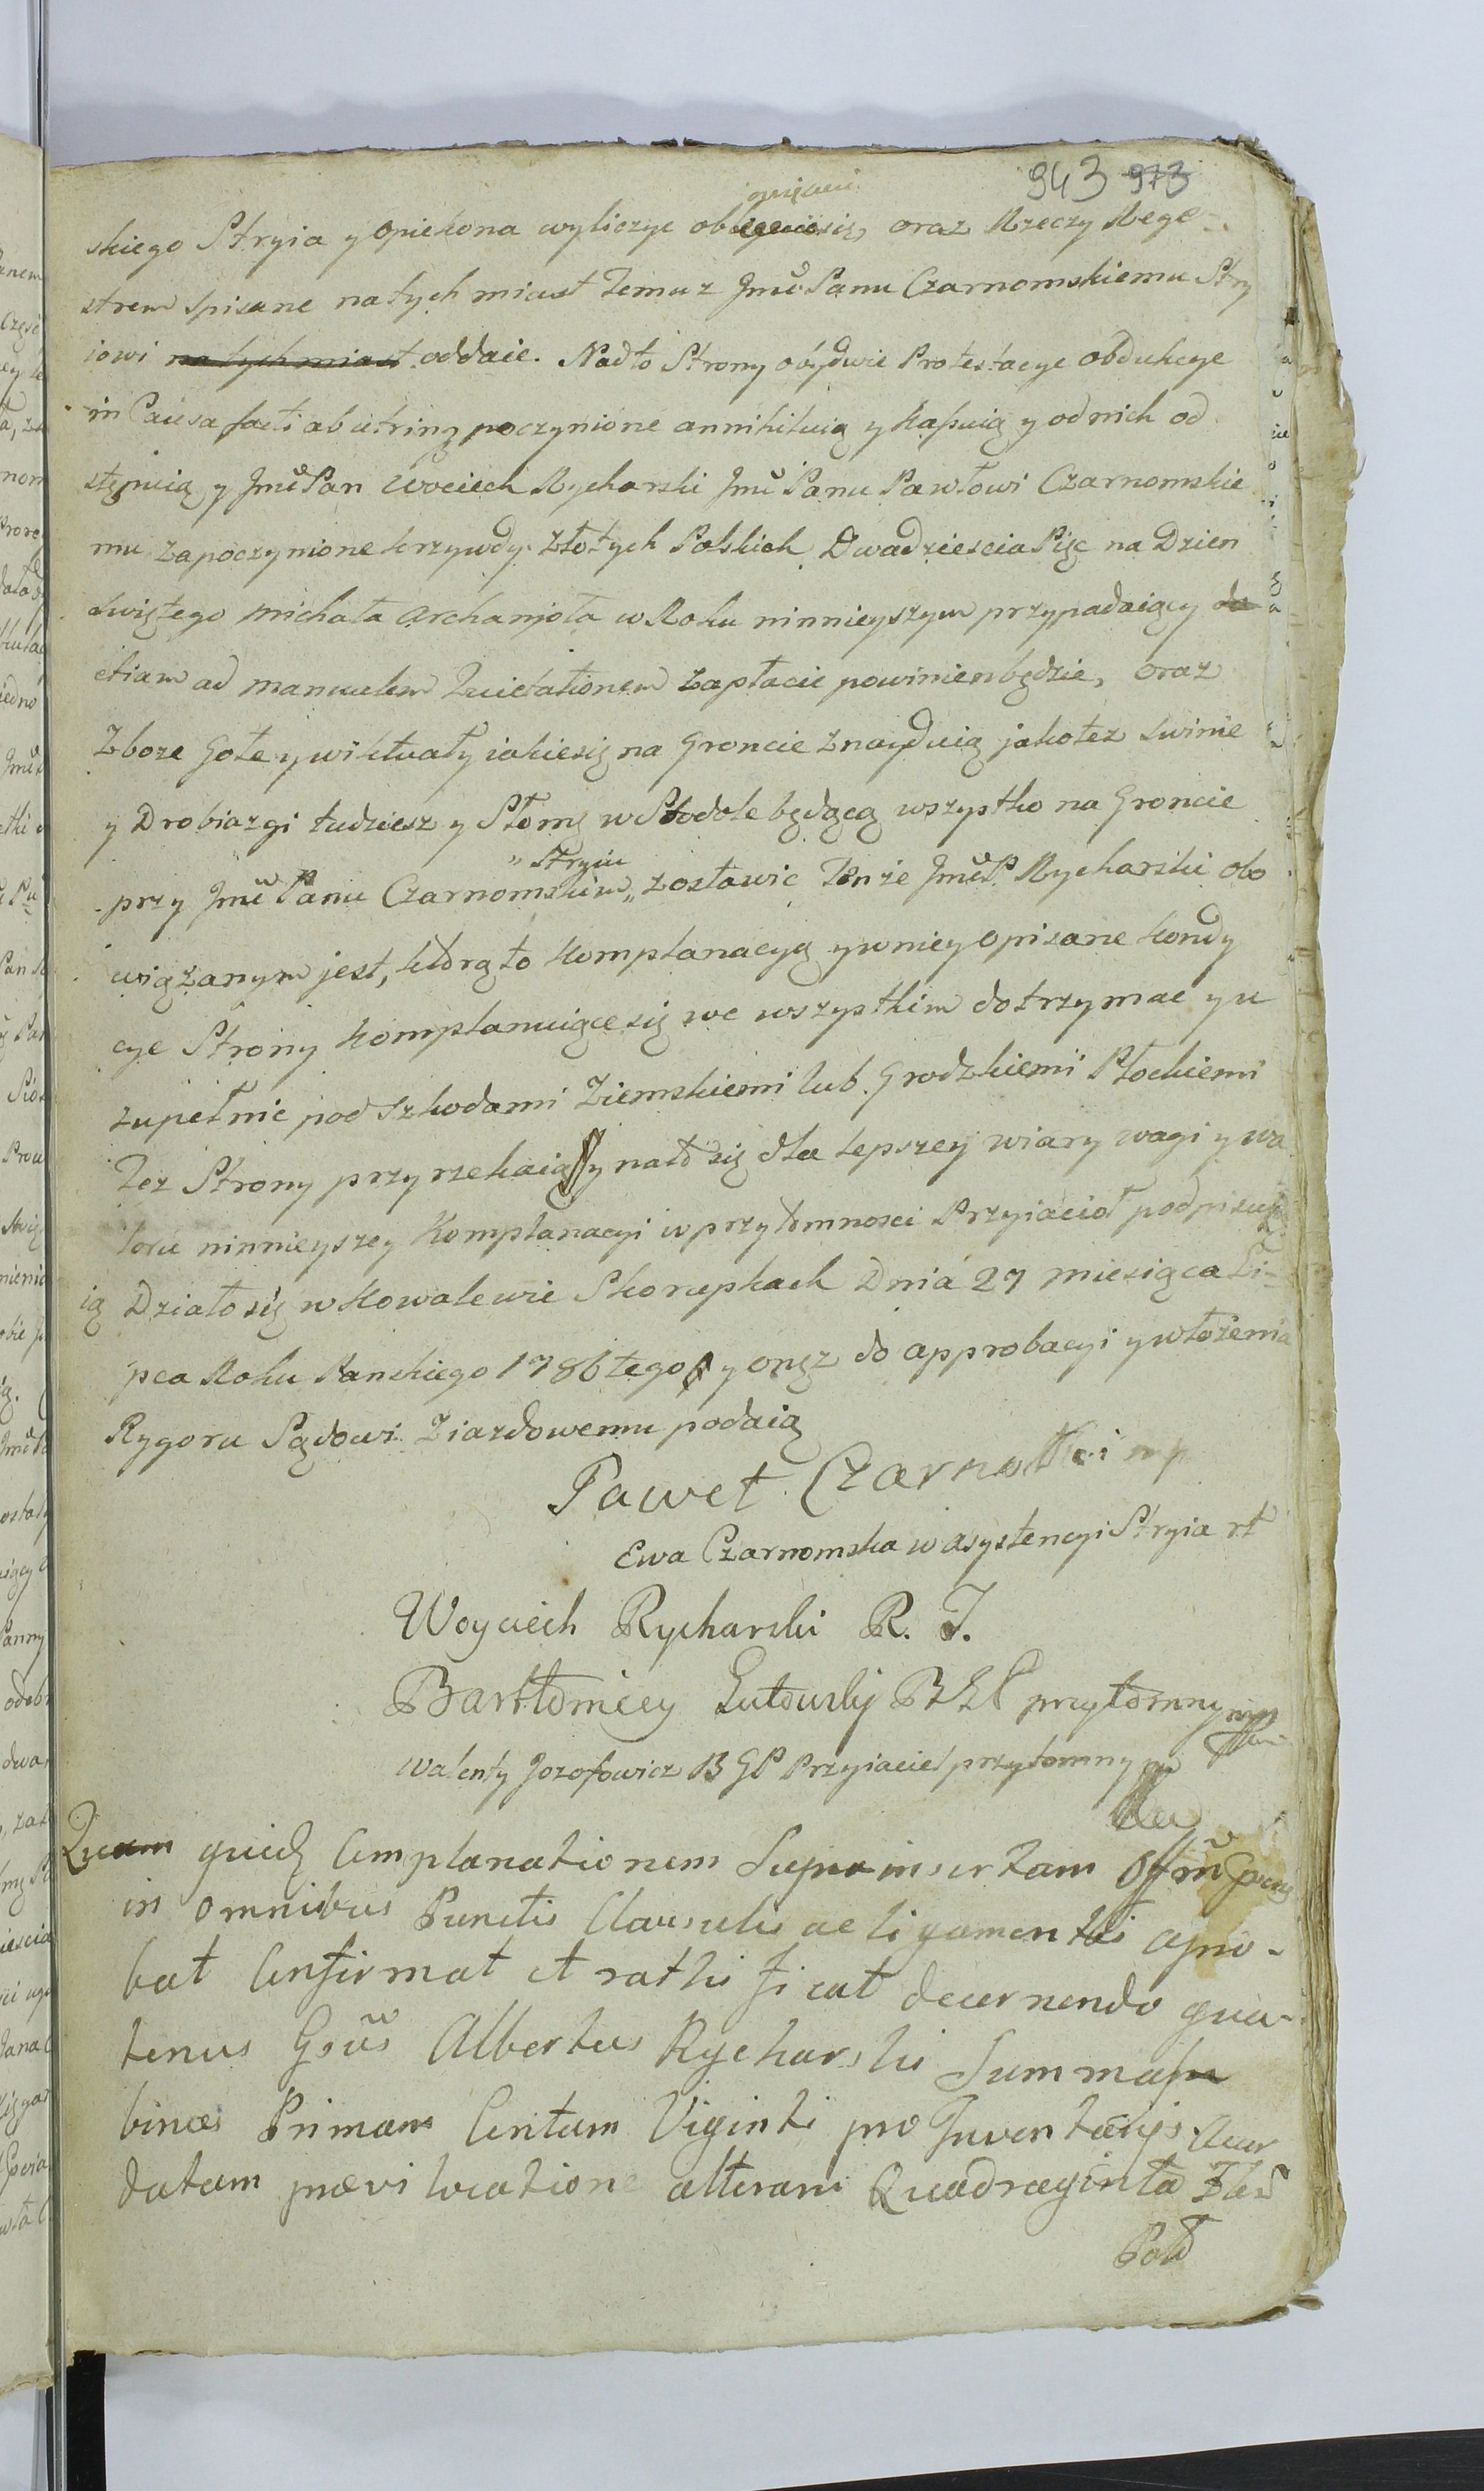 943 973
skiego Stryia y Opiekona wyliczyc obliguie się, oraz Rzeczy Rege-
strem Spisane natychmiast Temuz Jmć Panu Czarnomskiemu Stry
iowi natychmiast oddaie. Nadto Strony obydwie Protestacye obdukcye
in Causa facti ab utrinq poczynione annihiluią y kaßuią y od nich od
stępuią y Jmć Pan Wociech Rycharski Jmć Panu Pawłowi Czarnomskie
mu za poczynione krzywdy Złotych Polskich Dwadziescia Pięc na Dzien
Swiętego Michała Archanioła w Roku ninnieyszym przypadaiący da
etiam ad manualem Quietationem Zapłacic powinien będzie, oraz
Zboze Gołe y wiktuały iakie się na Groncie Znayduią jako tez Swinie
y Drobiazgi tudziesz y Słomę w Stodole będącą wszystko na Groncie
przy Jmć Panu Czarnomskim „Stryiu„ zostawic Tenze Jmć P. Rycharski obo
wiązanym jest, którą to Komplanacyą y w niey Opisane kondy
cye Strony Komplanuiące się we wszystkim dotrzymac y u
zupełnic pod Szkodami Ziemskiemi lub Grodzkiemi Płockiemi
Też Strony przyrzekaią y na to się dla lepszey wiary wagi y wa
loru ninnieyszey Komplanacyi w przytomnosci Przyiacioł podpisu
ią Działo się w Kowalewie Skorupkach Dnia 27 miesiąca Li-
pca Roku Panskiego 1786 tego y onęz do approbacyi y włożenia
Rygoru Sądowi Ziazdowemu podaią
Paweł Czarnomski mp
Ewa Czarnomska w asystencyi Stryia rt
Woyciech Rycharski R. J.
Bartłomiey Lutowski przytomny mp
Walenty Jozofowicz B G P Przyiaciel przytomny
Quam quidę Complanationem Supra insertam Offm
in omnibus Punctis Clausulis ac ligamentis apro-
bat Confirmat et rathificat decernendo qua-
tenus Gsūs Albertus Rycharski Summas
binas Primam Centum Viginti pro Inventarijs
datam prævi locatione alteram Quadraginta
Pol